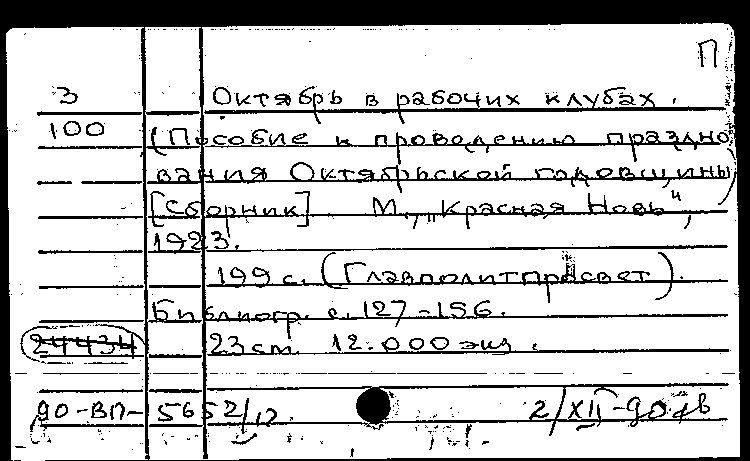 П
3 Октябрь в рабочих клубах.
100 (Пособие к проведению праздно
вания Октябрьской годовщины)
[Сборник] М., „Красная Новь",
1923.
199 с. (Главполитпросвет).
Библиогр. с. 127-156.
24434 23 см. 12.000 экз.
90-ВП-5652/12 2/XII-90